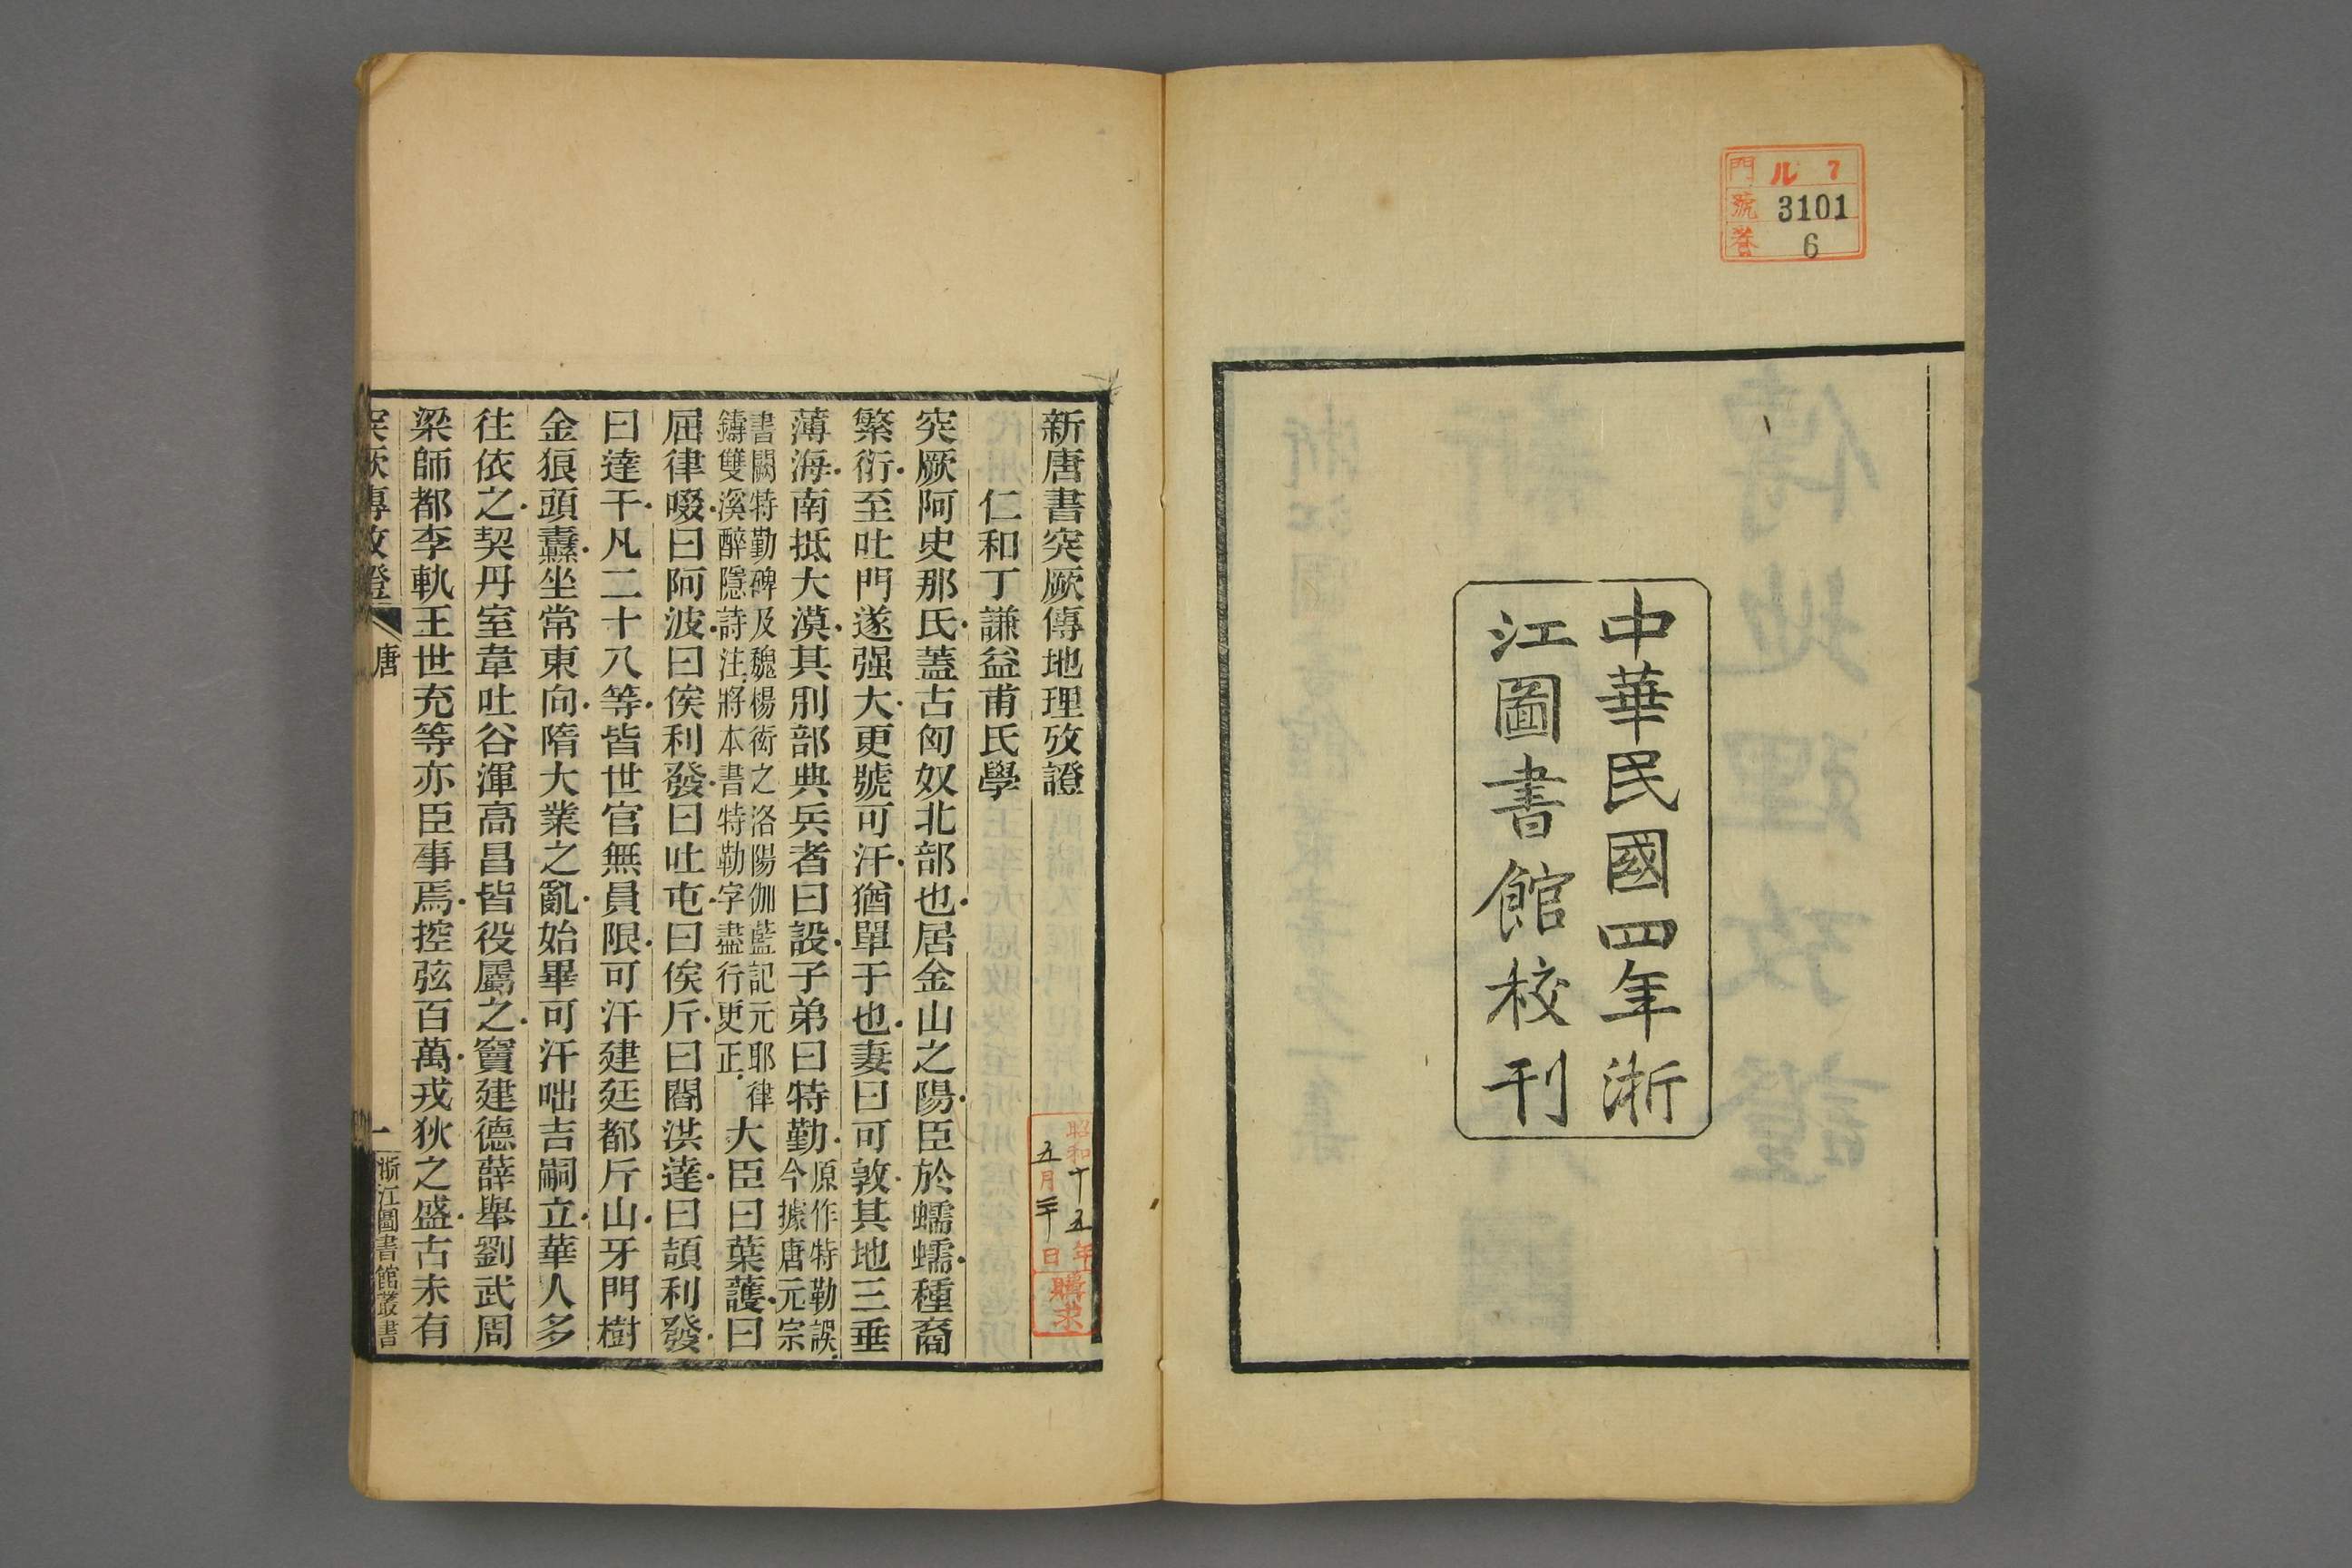 門 ル 7
號 3101
巻 6
中華民國四年浙
江圖書館校刊
新唐書突厥傳地理攷證
仁和丁謙益甫氏學
突厥阿史那氏蓋古匈奴北部也居金山之陽臣於蠕蠕種裔
繁衍至吐門遂强大更號可汗猶單于也妻曰可敦其地三垂
薄海南抵大漠其別部典兵者曰設子弟曰特勤原作特勒誤
今據唐元宗
書闕特勤碑及魏楊衒之洛陽伽藍記元耶律
鑄雙溪醉隱詩注將本書特勒字盡行更正大臣曰葉護曰
屈律啜曰阿波曰俟利發曰吐屯曰俟斤曰閻洪達曰頡利發
曰達干凡二十八等皆世官無員限可汗建廷都斤山牙門樹
金狼頭纛坐常東向隋大業之亂始畢可汗咄吉嗣立華人多
往依之契丹室韋吐谷渾高昌皆役屬之竇建德薛舉劉武周
梁師都李軌王世充等亦臣事焉控弦百萬戎狄之盛古未有
突厥傳攷證 唐 一 浙江圖書館叢書
昭和十五年
五月三十日
購求